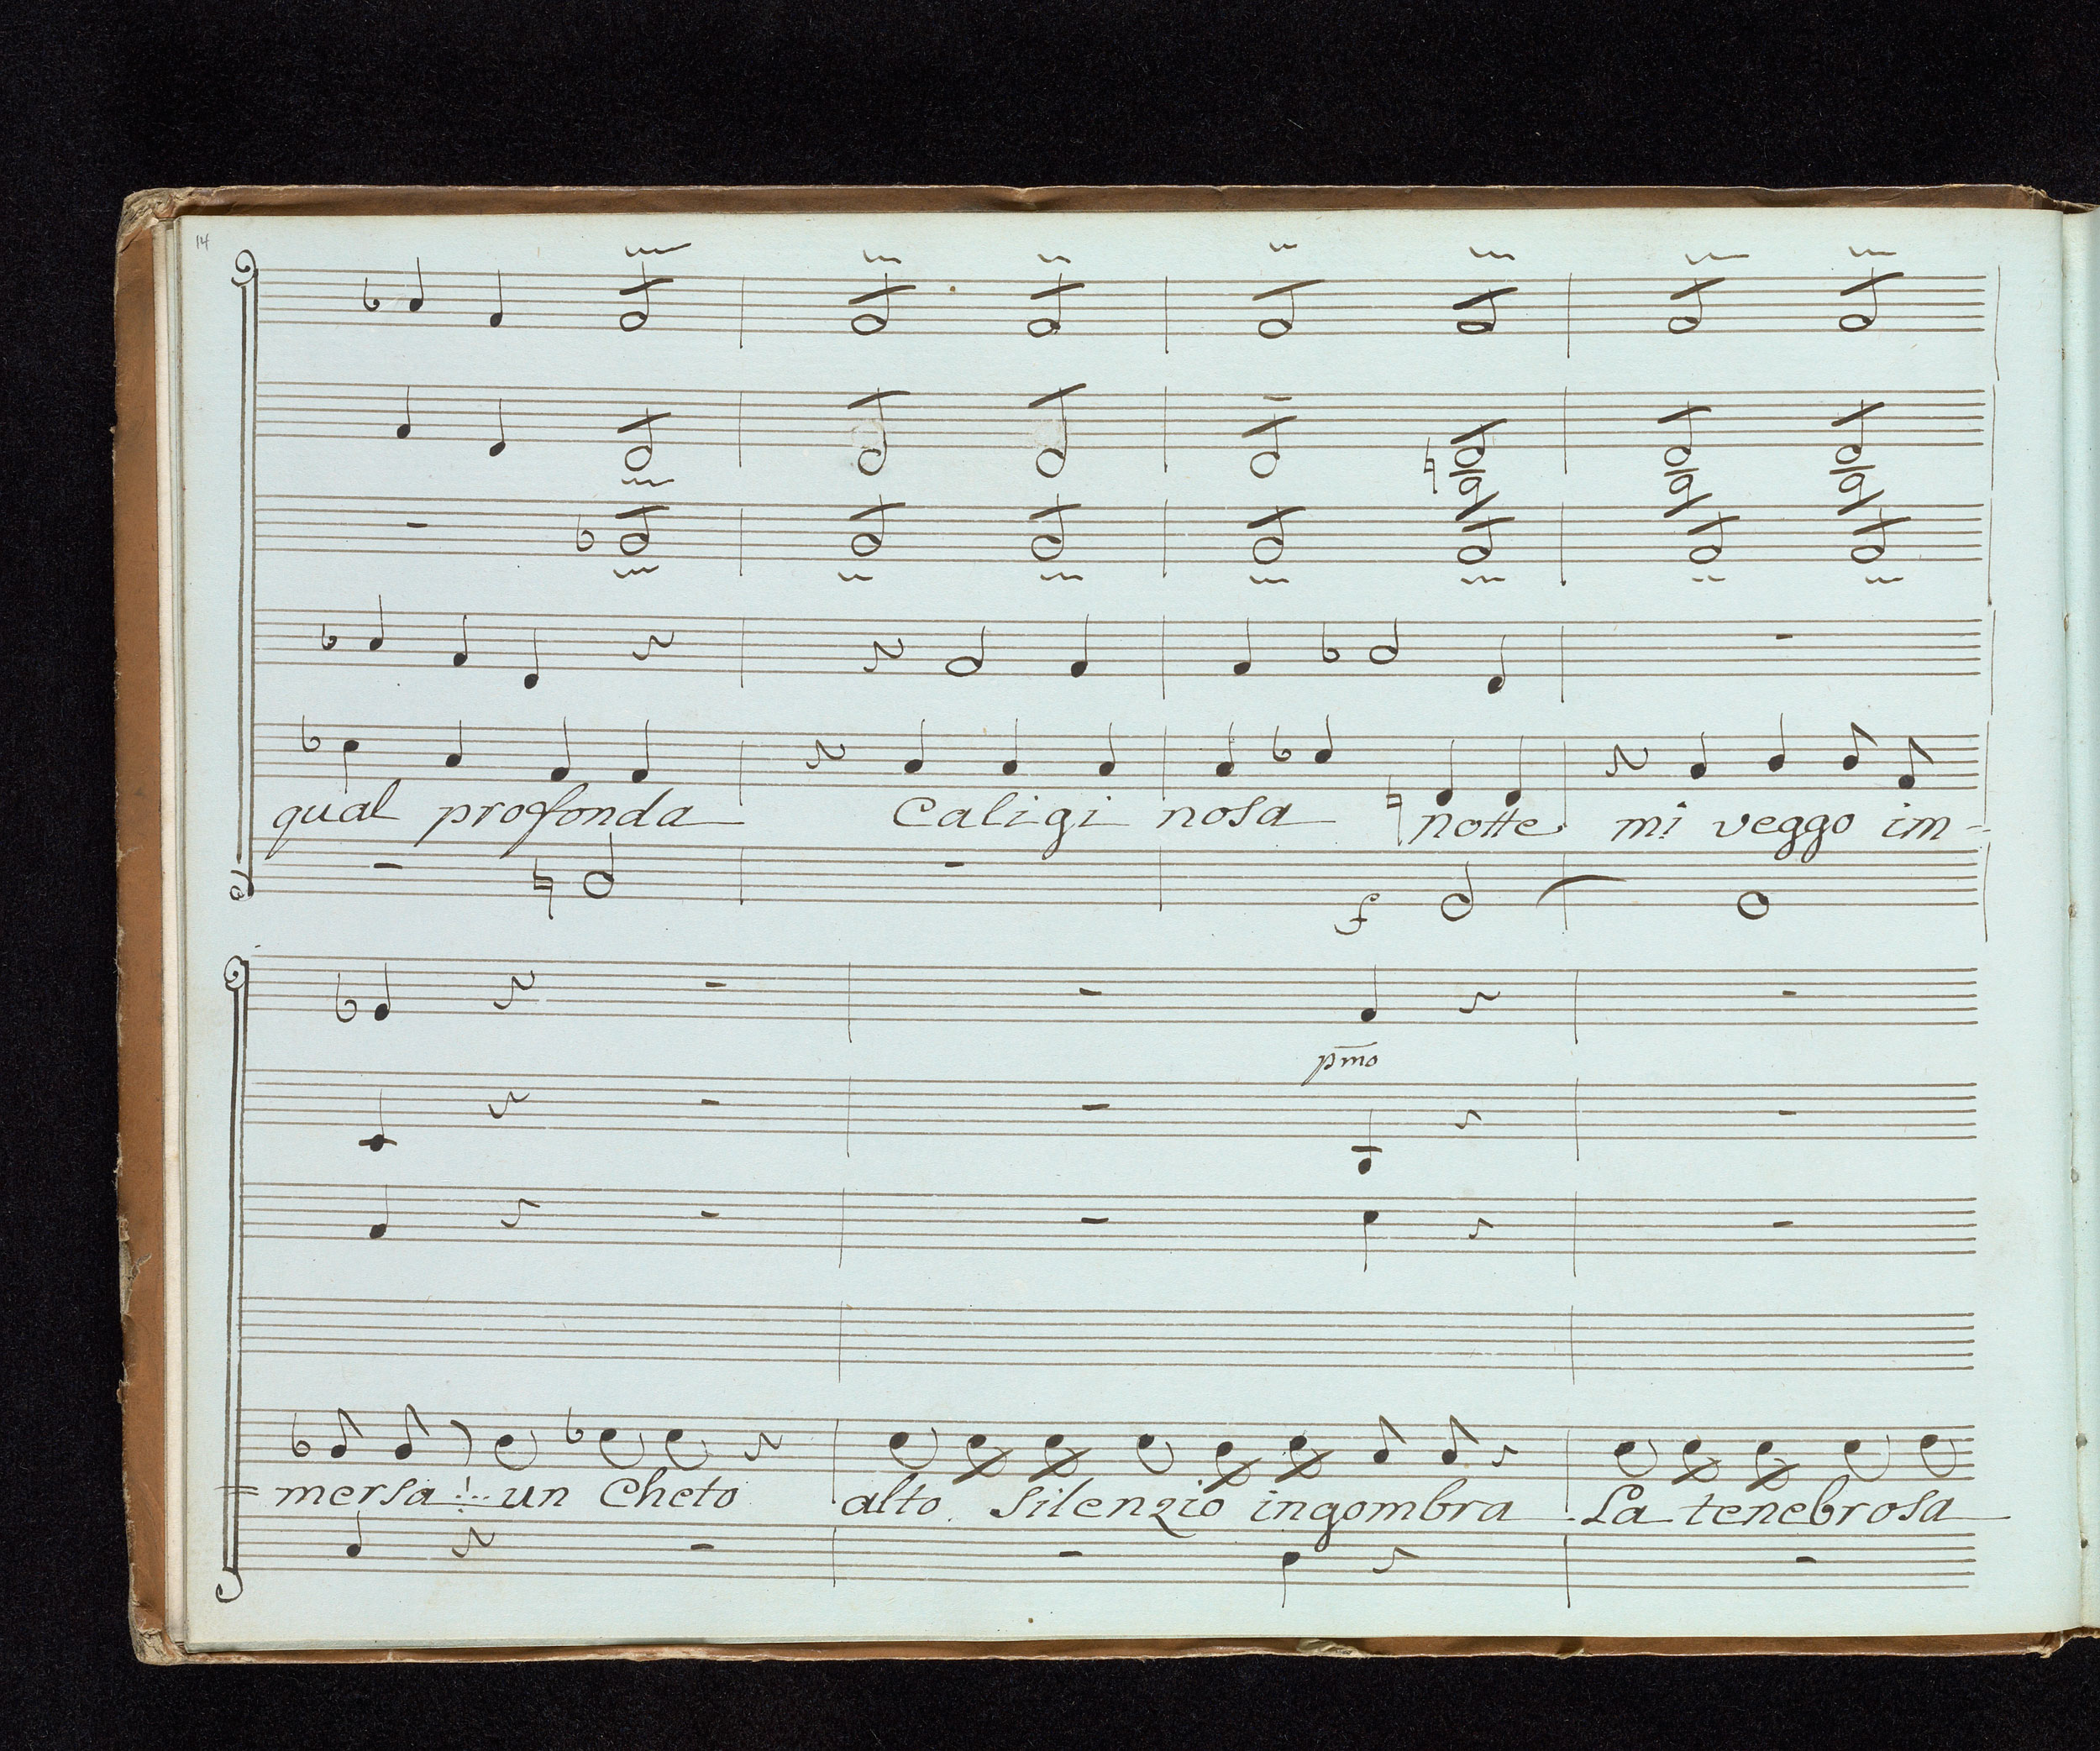 14
qual profonda Caligi nosa notte mi veggo im-
f
pmo
= mersa !... un Cheto alto silenzio ingombra La tenebrosa